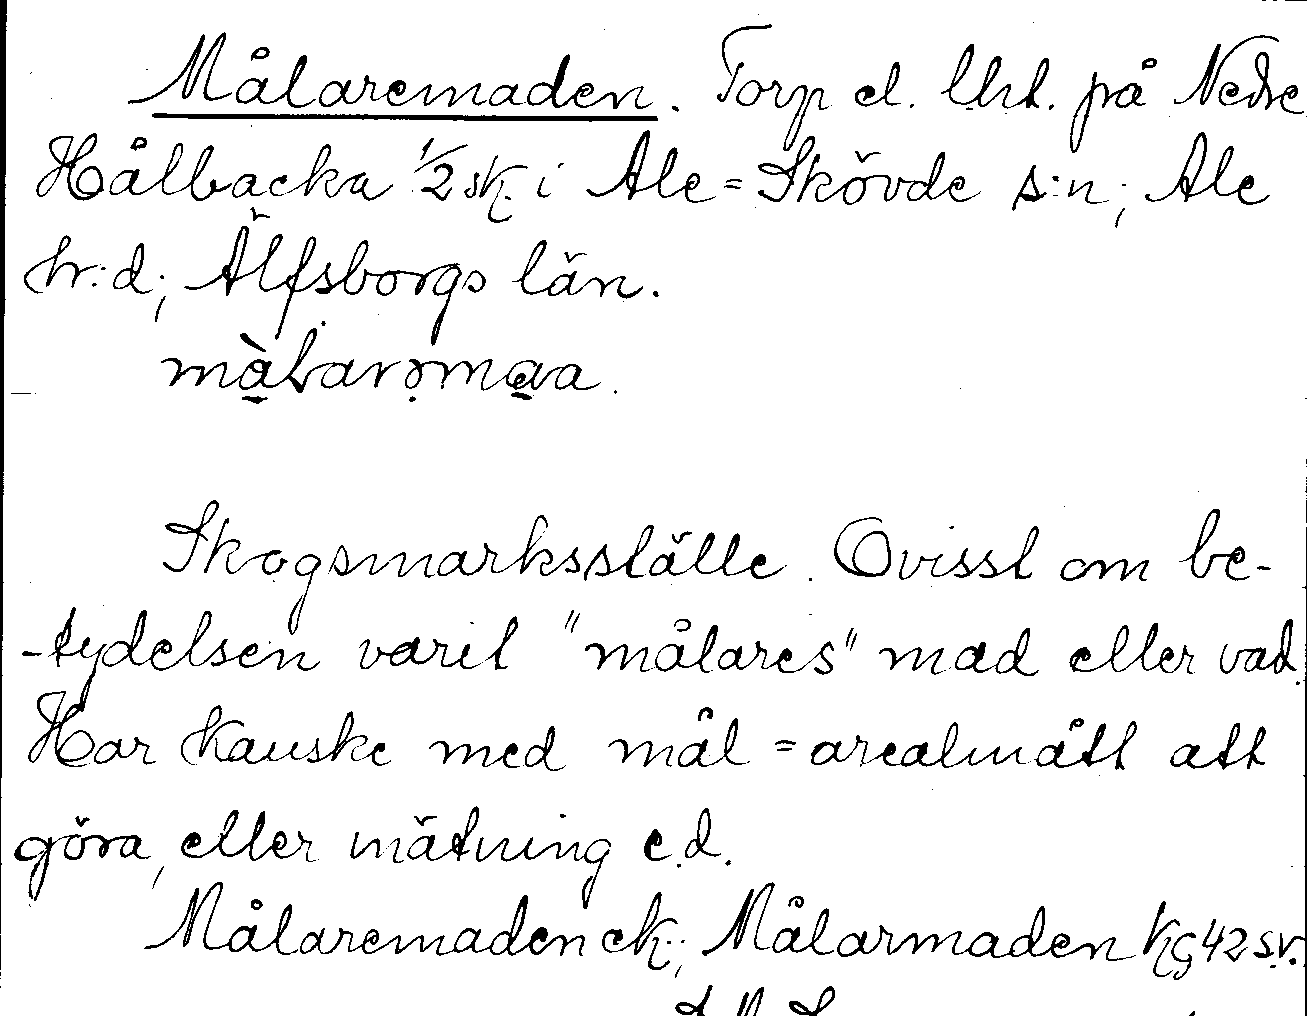 Målaremaden. Torp el. lht. på Nedre
Hålbacka 1/2 sk. i Ale=Skövde s:n; Ale
hr:d; Älfsborgs län.
Skogsmarksställe. Ovisst om be-
-tydelsen varit "målares" mad eller vad.
Har kanske med mål = arealmått att
göra, eller mätning e.d.
Målaremaden ek.; Målarmaden Kg 42 sv.